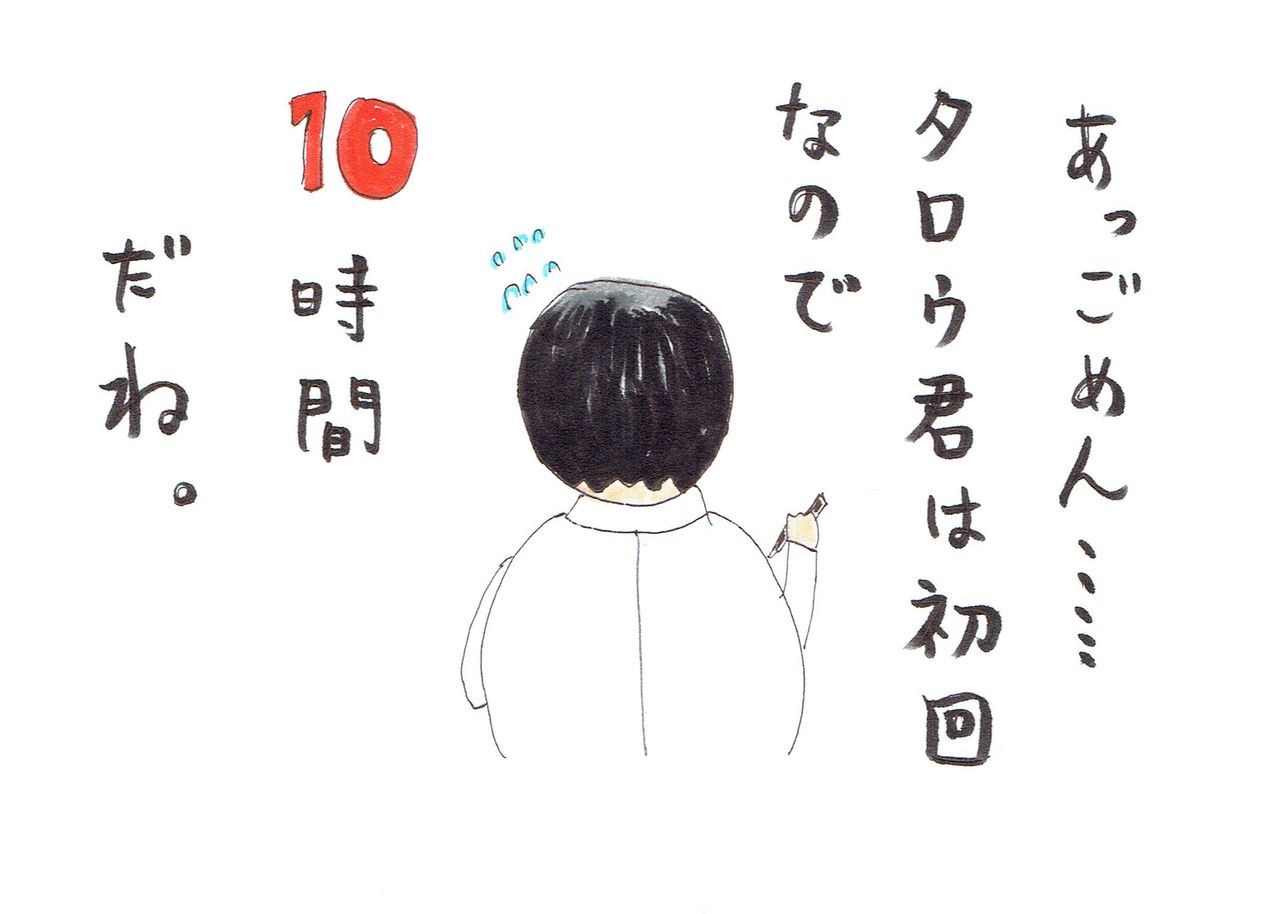 あっごめん……
タロウ君は初回
なので
10時間
だね。